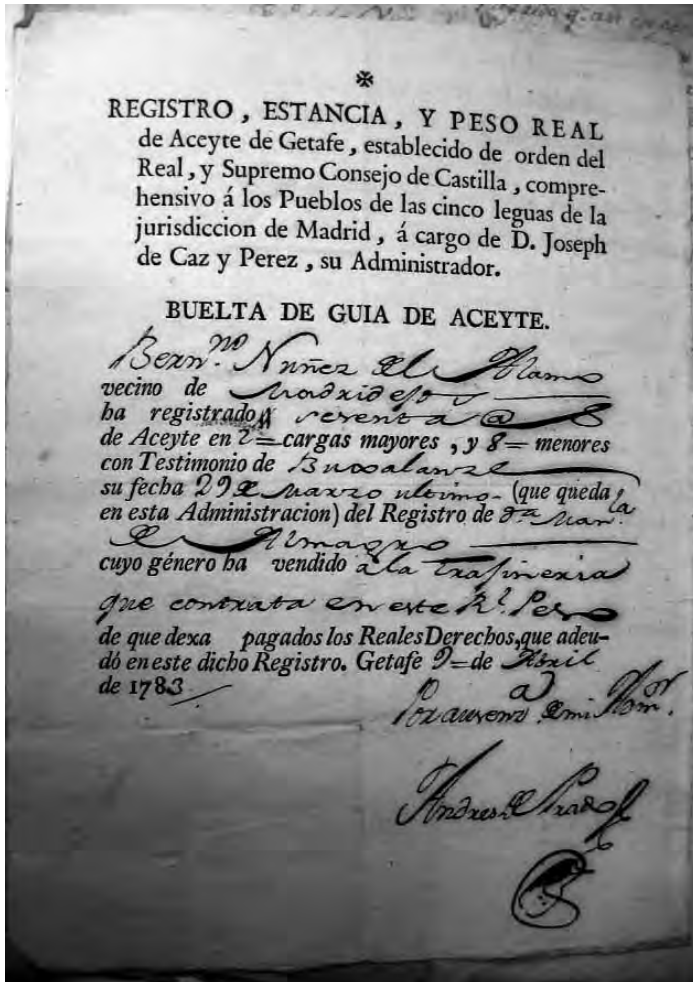 ✠
REGISTRO, ESTANCIA, Y PESO REAL
de Aceyte de Getafe, establecido de orden del
Real, y Supremo Consejo de Castilla, compre-
hensivo á los Pueblos de las cinco leguas de la
jurisdiccion de Madrid, á cargo de D. Joseph
de Caz y Perez, su Administrador.
BUELTA DE GUIA DE ACEYTE.
Bern.no Nuñez del Alamo
vecino de Madridejos
ha registrado sesenta @s
de Aceyte en 2= cargas mayores, y 8= menores
con Testimonio de Buxalanze
su fecha 29 de Marzo ultimo- (que queda
en esta Administracion) del Registro de d.na Man.la
de Almagro
cuyo género ha vendido à la trajineria
que contrata en este R.l Peso
de que dexa pagados los Reales Derechos, que adeu-
dó en este dicho Registro. Getafe 9= de Abril
de 1783
Por ausenz.a de mi Adm.or
Andres de Prado